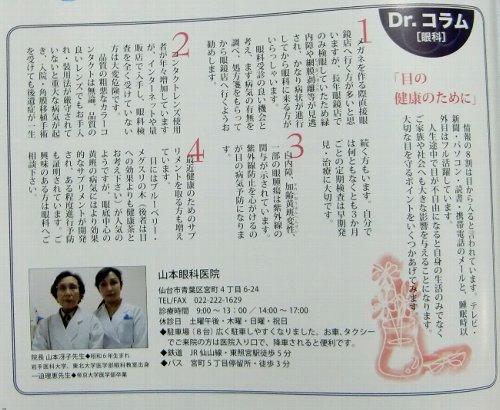 Dr.コラム
[眼科]
「目の
健康のために」
情報の8割は目から入ると言われています。テレビ・
新聞・パソコン・読書・携帯電話のメールと、睡眠時以
外目はフル活躍しています。
人生途中で目が不自由になると自身の生活のみでなく
ご家族や社会へも大きな影響を与えることになります。
大切な目を守るポイントをいくつかあげてみます
1
メガネを作る際直接眼
鏡店へ行く方が多いと思
いますが、長年眼鏡店で
のみ検眼していたため緑
内障や網膜剥離等が見逃
され、かなり病状が進行
してから眼科に来る方が
いらっしゃいます。
眼科受診の良い機会と
考え、まず病気の有無を
調べ、処方箋をもらって
から眼鏡店へ行くようお
勧めします。
2
コンタクトレンズ使用
者が年々増加しています
が、インターネットや量
販店で入手し、眼科検
査を全く受けていない
方は大変危険です。
品質の粗悪なカラーコ
ンタクトは無論、品質の
良いレンズでもお手入
れ・装用法が厳守されて
いないと重大な病気を起
きし入院、角膜移植手術
を受けても後遺症が一生
続く方もいます。自分で
は何ともなくとも3か月
ごとの定期検査は早期発
見・治療に大切です。
3
白内障、加齢黄斑変性、
一部の眼腫瘍は紫外線の
関与が示されています。
紫外線防止を心がけるの
が目の病気予防になりま
す。
4
最近健康のためのサプ
リメントを取る方も増え
ています。
目にはブルーベリー・
メグスリの木(後者は目
への効果よりも健康茶と
お考え下さい)が人気の
ようですが、眼底中心の
黄斑の病気にはより効果
的なサプリメントが開発
され、ある程度進行予防
も証明されています。
興味のある方は眼科へご
相談下さい。
山本眼科医院
仙台市青葉区宮町4丁目6-24
TEL/FAX 022-222-1629
診療時間 9:00〜13:00/14:00〜17:00
休診日 土曜午後・木曜・日曜・祝日
◆駐車場(8台)広く駐車しやすくなりました、お車、タクシー
でご来院の方は医院が入り口で、降車されると便利です。
◆鉄道 JR仙山線・東照宮駅徒歩5分
◆バス 宮町5丁目停留所・徒歩3分
院長 山本冴子先生●昭和6年生まれ
岩手医科大学、東北大学医学部眼科教室出身
一迫理恵先生●帝京大学医学部卒業